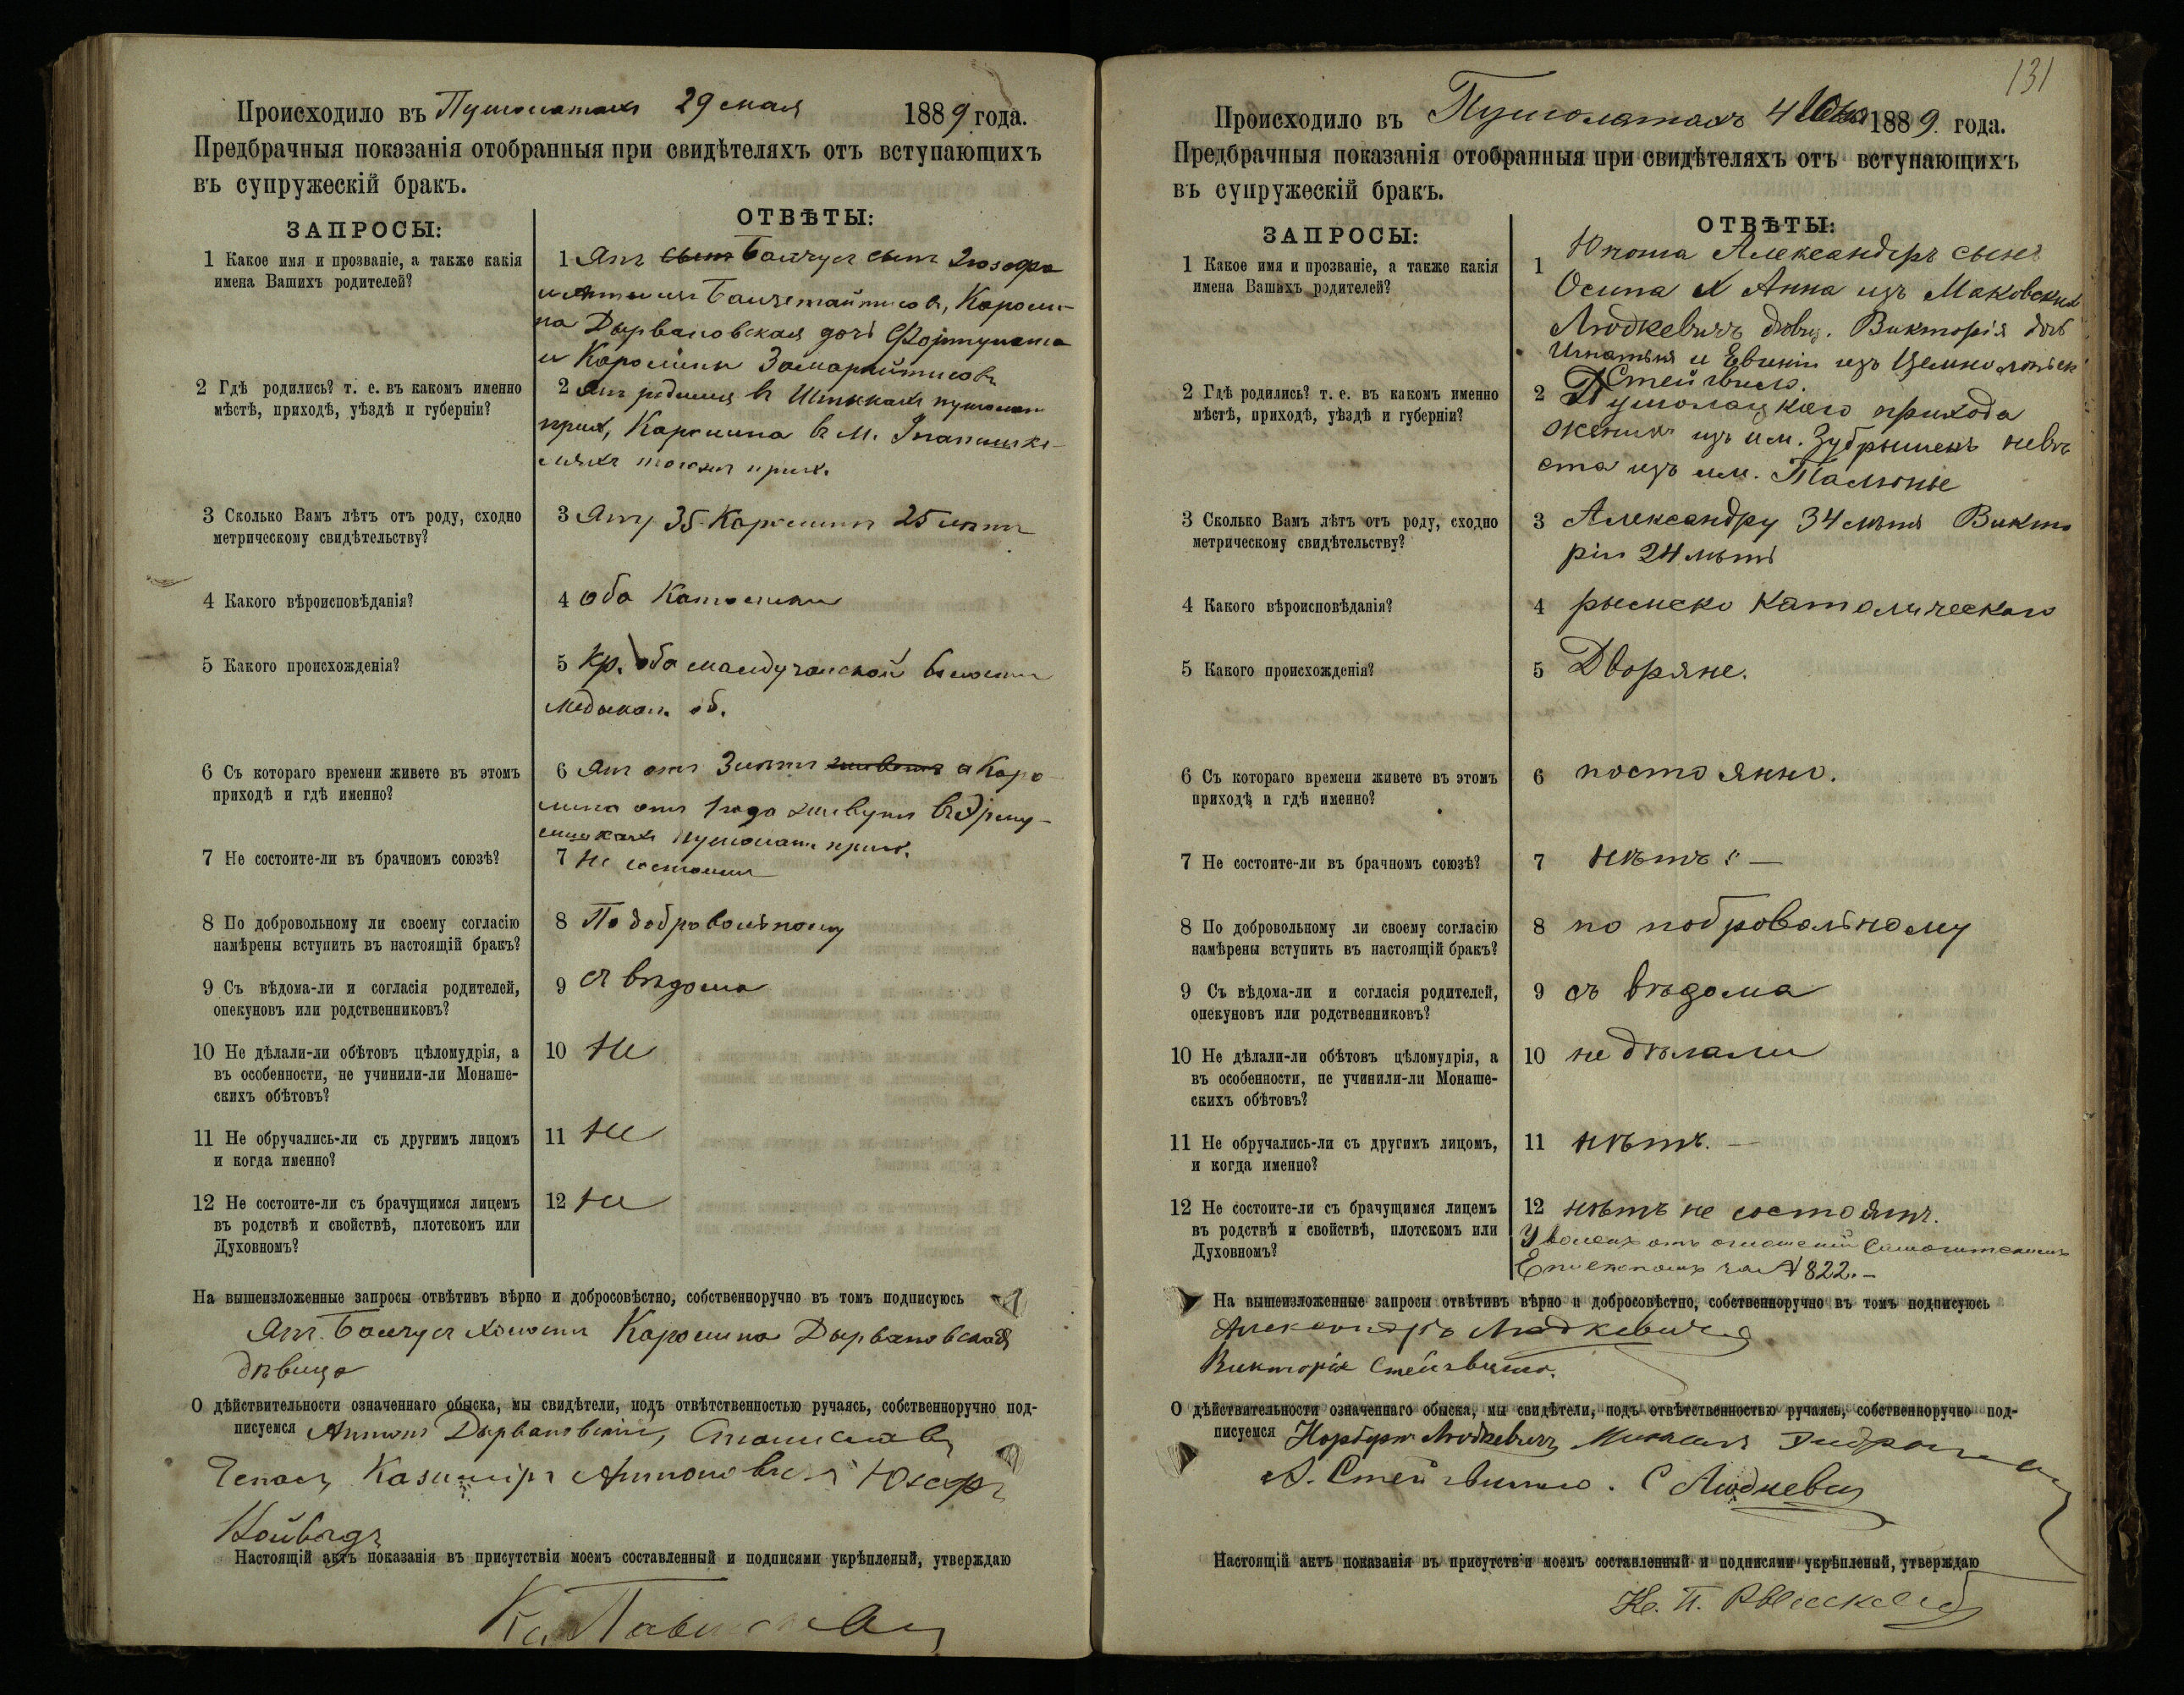 Происходило въ Пушолатахъ 29 мая 1889 года.
Предбрачныя показанія отобранныя при свидѣтеляхъ отъ вступающихъ
въ супружескій бракъ.
ЗАПРОСЫ:
ОТВѢТЫ:
1 Какое имя и прозваніе, а также какія
имена Вашихъ родителей?
1 Янъ сынъ Балчусъ сынъ Іюзефа
Кароли-
на Дырвановская дочь Фортуната
и Каролины
2 Гдѣ родились? т. е. въ какомъ именно
мѣстѣ, приходѣ, уѣздѣ и губерніи?
2 Янъ родился въ пушолат
прих, Каролина въ м.
прих.
3 Сколько Вамъ лѣтъ отъ роду, сходно
метрическому свидѣтельству?
3 Яну 35 Каролинѣ 25 лѣтъ
4 Какого вѣроисповѣданія?
4 оба Католики
5 Какого происхожденія?
5 Кр. оба волости
об.
6 Съ котораго времени живете въ этомъ
приходѣ и гдѣ именно?
6 Янъ отъ 3 лѣтъ а Каро-
лина отъ 1 года живутъ въ
пушолат прих.
7 Не состоите-ли въ брачномъ союзѣ?
7 Не состоимъ
8 По добровольному ли своему согласію
намѣрены вступить въ настоящій бракъ?
8 По добровольному
9 Съ вѣдома-ли и согласія родителей,
опекуновъ или родственниковъ?
9 съ вѣдома
10 Не дѣлали-ли обѣтовъ цѣломудрія, а
въ особенности, не учинили-ли Монаше-
скихъ обѣтовъ?
10 Не
11 Не обручались-ли съ другимъ лицомъ
и когда именно?
11 Не
12 Не состоите-ли съ брачущимся лицемъ
въ родствѣ и свойствѣ, плотскомъ или
Духовномъ?
12 Не
На вышеизложенные запросы отвѣтивъ вѣрно и добросовѣстно, собственноручно въ томъ подписуюсь
Янъ Балчусъ холостъ Каролина Дырвановская
дѣвица
О дѣйствительности означеннаго обыска, мы свидѣтели, подъ отвѣтственностью ручаясь, собственноручно под-
писуемся Антонъ Дырвановскій, Станиславъ
Казимиръ Юзефъ
Настоящій актъ показанія въ присутствіи моемъ составленный и подписями укрѣпленый, утверждаю
131
Происходило въ Пушолатахъ 4 1889 года.
Предбрачныя показанія отобранныя при свидѣтеляхъ отъ вступающихъ
въ супружескій бракъ.
ЗАПРОСЫ:
ОТВѢТЫ:
1 Какое имя и прозваніе, а также какія
имена Вашихъ родителей?
1 Юноша Александръ сынъ
Осипа и Анна изъ Маковскихъ
Людкевичъ дѣвиц. Викторія дочь
Игнатія и Евгеніи изъ
Стейгвилло.
2 Гдѣ родились? т. е. въ какомъ именно
мѣстѣ, приходѣ, уѣздѣ и губерніи?
2 Пушолацкого прихода
женихъ изъ им. Зубрышекъ невѣ
ста изъ им. Талюнье
3 Сколько Вамъ лѣтъ отъ роду, сходно
метрическому свидѣтельству?
3 Александру 34 лѣтъ Викто
ріи 24 лѣтъ
4 Какого вѣроисповѣданія?
4 рымско католическаго
5 Какого происхожденія?
5 Дворяне.
6 Съ котораго времени живете въ этомъ
приходѣ и гдѣ именно?
6 постоянно.
7 Не состоите-ли въ брачномъ союзѣ?
7 нѣтъ
8 По добровольному ли своему согласію
намѣрены вступить въ настоящій бракъ?
8 по побровольному
9 Съ вѣдома-ли и согласія родителей,
опекуновъ или родственниковъ?
9 съ вѣдома
10 Не дѣлали-ли обѣтовъ цѣломудрія, а
въ особенности, не учинили-ли Монаше-
скихъ обѣтовъ?
10 не дѣлали
11 Не обручались-ли съ другимъ лицомъ,
и когда именно?
11 нѣтъ.
12 Не состоите-ли съ брачущимся лицемъ
въ родствѣ и свойствѣ, плотскомъ или
Духовномъ?
12 нѣтъ не состоятъ.
отъ
Епископомъ за № 822.
На вышеизложенные запросы отвѣтивъ вѣрно и добросовѣстно, собственноручно въ томъ подписуюсь
Александръ Людкевичъ
Викторія Стейгвилло.
О дѣйствительности означеннаго обыска, мы свидѣтели, подъ отвѣтственностью ручаясь, собственноручно под-
писуемся Норбертъ Людкевичъ
А. Стейгвилло. С Людкевичъ
Настоящій актъ показанія въ присутствіи моемъ составленный и подписями укрѣпленый, утверждаю